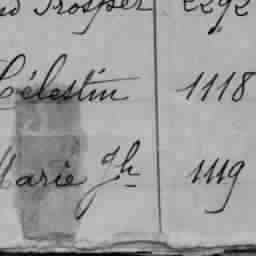 Prosper 2292
Célestin 1118
Marie Jh 1119